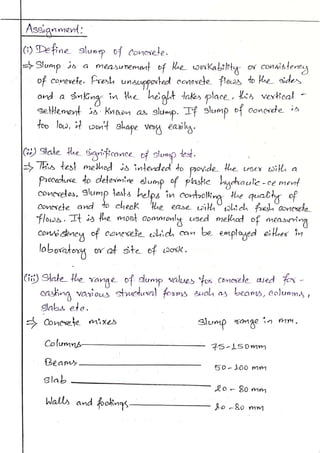 Assignment:
(i) Define slump of Concrete.
⇒ Slump is a measurement of the workability or consistency
of concrete. Fresh unsupported concrete flows to the sides
and a sinking in the height takes place. this vertical -
settlement is Known as slump. If slump of concrete is
too low, it won't shape very easily.
(ii) State the significance of slump test.
⇒ This test method is intended to provide the user with a
procedure to determine slump of plastic hydraulic-cement
concretes. Slump tests helps in controlling the quality of
concrete and to check the ease with which fresh concrete
flows. It is the most commonly used method of measuring
consistency of concrete which can be employed either in
laboratory or at site of work.
(iii) State the range of slump values for concrete used for -
casting various structural forms such as beams, columns,
slabs etc.
⇒ Concrete mixes Slump range in mm.
Columns 75-150mm
Beams 50-100 mm
Slab 20 - 80 mm
Walls and footings 20 - 80 mm